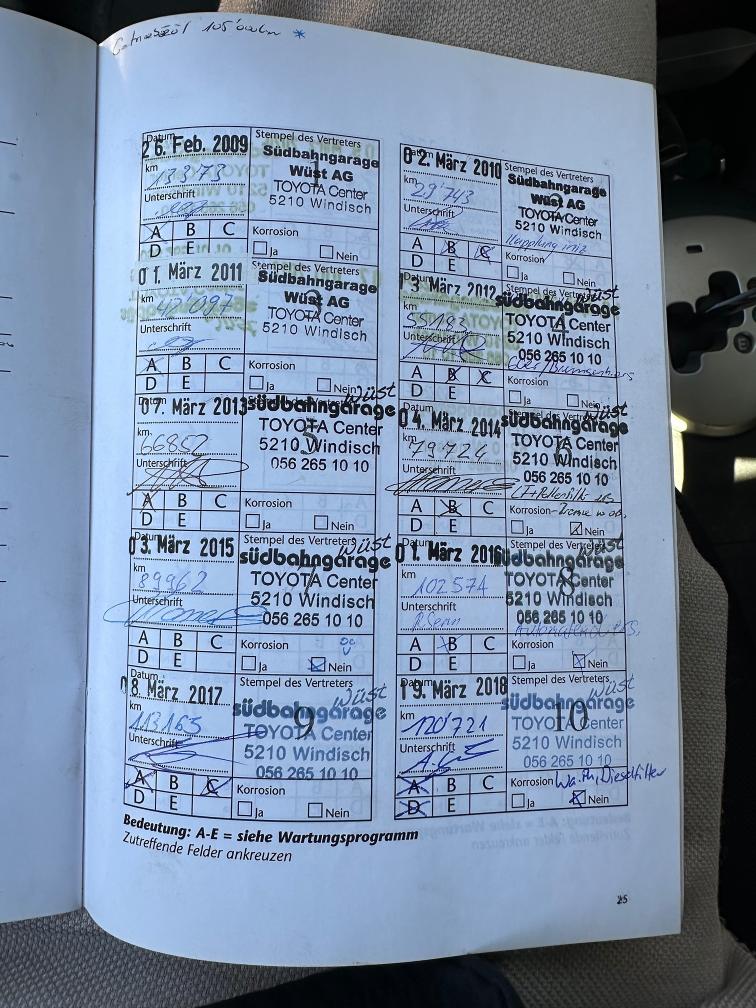 Getriebeöl 105'000km *
Datum
26. Feb. 2009
km
13'173
Unterschrift
A B C
D E
Stempel des Vertreters
1
Südbahngarage
Wüst AG
TOYOTA Center
5210 Windisch
Korrosion
Ja Nein
Datum
02. März 2010
km
29'743
Unterschrift
A B C
D E
Stempel des Vertreters
Südbahngarage
Wüst AG
TOYOTA Center
5210 Windisch
Korrosion
Ja Nein
01. März 2011
km
42'097
Unterschrift
A B C
D E
Stempel des Vertreters
Südbahngarage
Wüst AG
TOYOTA Center
5210 Windisch
Korrosion
Ja Nein
Datum
13. März 2012
km
55193
Unterschrift
A B C
D E
Stempel des Vertreters
Wüst
südbahngarage
TOYOTA Center
5210 Windisch
056 265 10 10
Korrosion
Ja Nein
07. März 2013
km
66852
Unterschrift
A B C
D E
Wüst
südbahngarage
TOYOTA Center
5
5210 Windisch
056 265 10 10
Korrosion
Ja Nein
04. März 2014
km
79724
Unterschrift
A B C
D E
Stempel des Vertreters
Wüst
südbahngarage
TOYOTA Center
5210 Windisch
056 265 10 10
Korrosion
Ja Nein
Datum
03. März 2015
km
89962
Unterschrift
A B C
D E
Stempel des Vertreters
Wüst
südbahngarage
7
TOYOTA Center
5210 Windisch
056 265 10 10
Korrosion
Ja Nein
01. März 2016
km
102574
Unterschrift
A B C
D E
Stempel des Vertreters
Wüst
südbahngarage
8
TOYOTA Center
5210 Windisch
056 265 10 10
Korrosion
Ja Nein
Datum
08. März 2017
km
113165
Unterschrift
A B C
D E
Stempel des Vertreters
Wüst
südbahngarage
9
TOYOTA Center
5210 Windisch
056 265 10 10
Korrosion
Ja Nein
Datum
19. März 2018
km
120'721
Unterschrift
A B C
D E
Stempel des Vertreters
Wüst
südbahngarage
10
TOYOTA Center
5210 Windisch
056 265 10 10
Korrosion Dieselfilter
Ja Nein
Bedeutung: A-E = siehe Wartungsprogramm
Zutreffende Felder ankreuzen
25